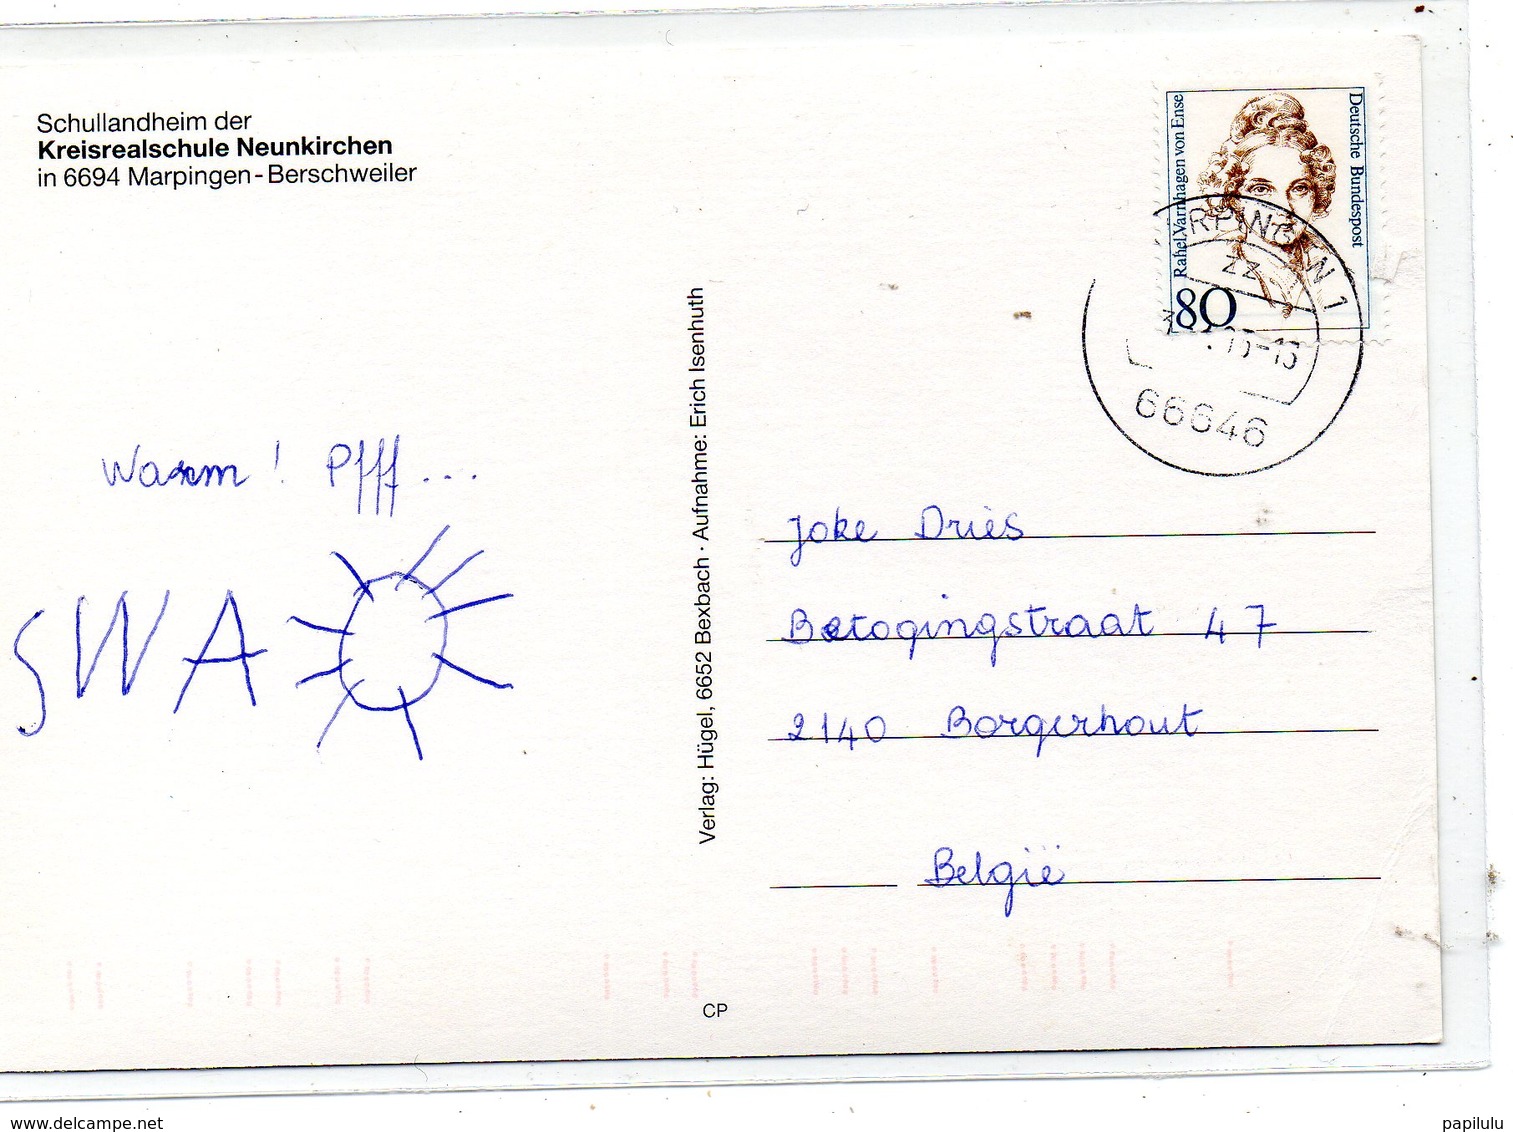 Schullandheim der
Kreisrealschule Neunkirchen
in 6694 Marpingen-Berschweiler
Warm! Pfff...
SWA
Verlag: Hügel, 6652 Bexbach · Aufnahme: Erich Isenhuth
Rahel Varnhagen von Ense
Deutsche Bundespost
80
RPINGEN 1
zz
66646
Joke Driès
Betogingstraat 47
2140 Borgerhout
België
CP
www.delcampe.net
papilulu